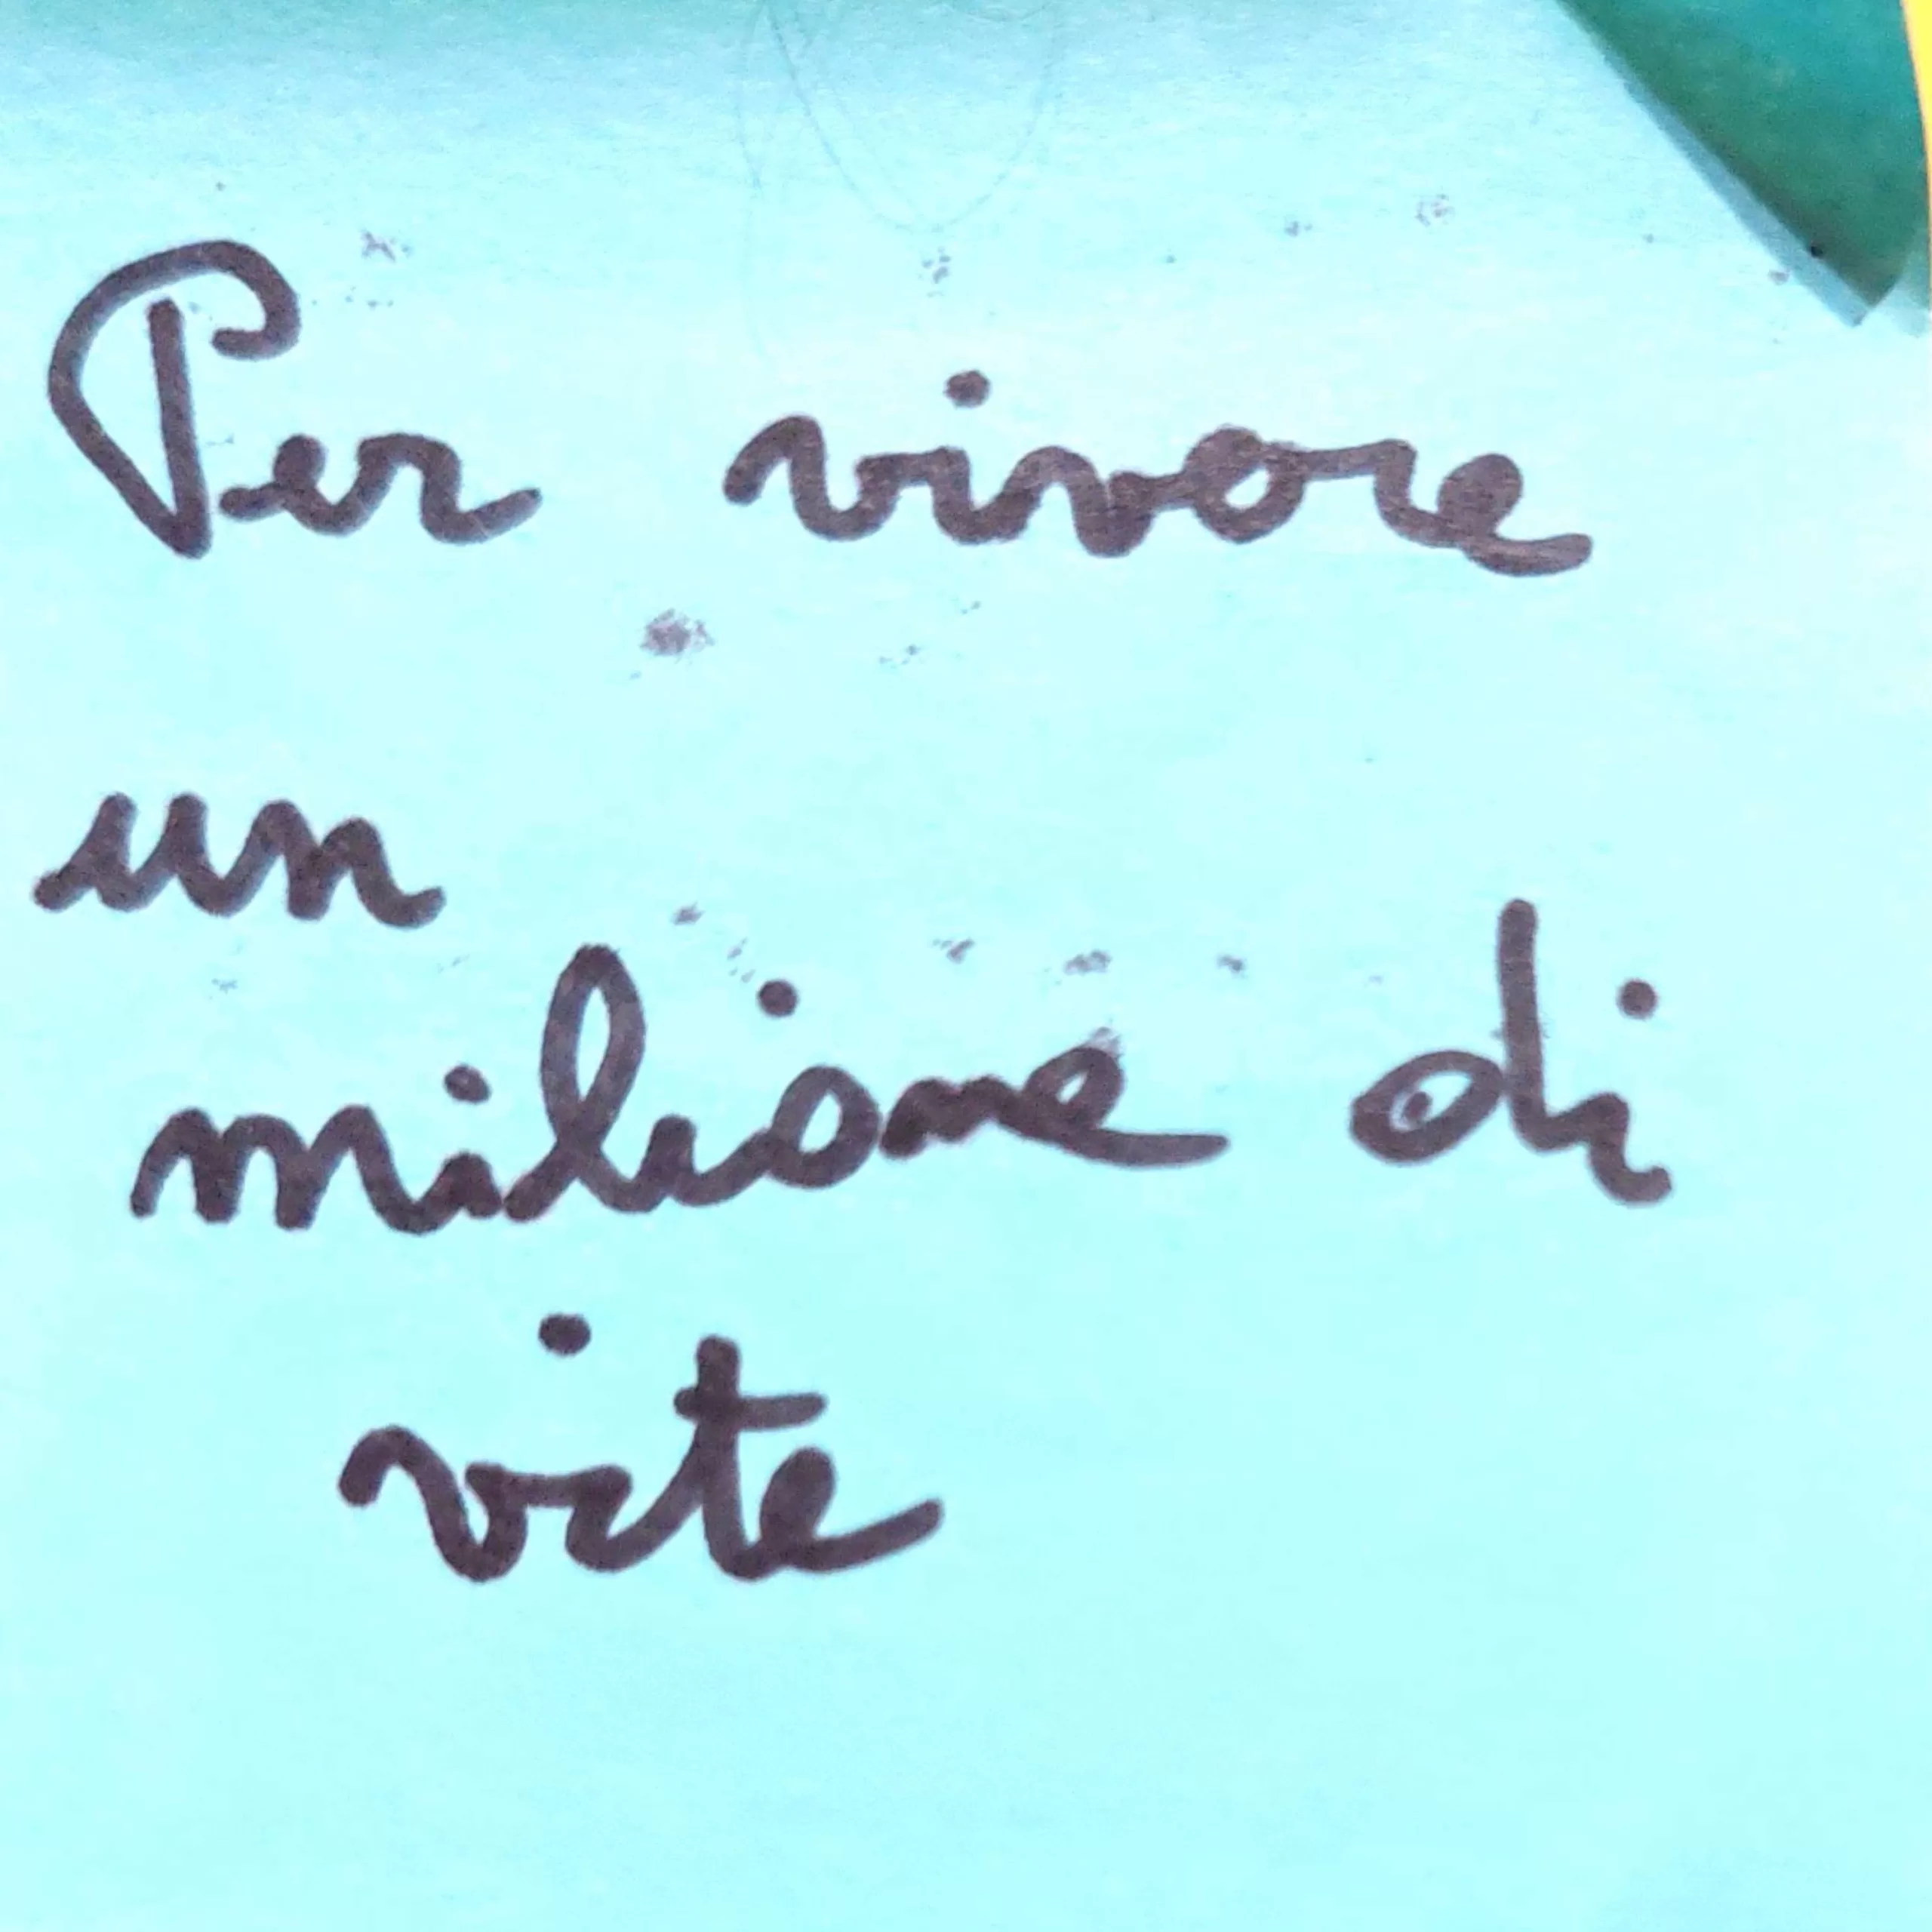 Per vivore
un
milione di
vite